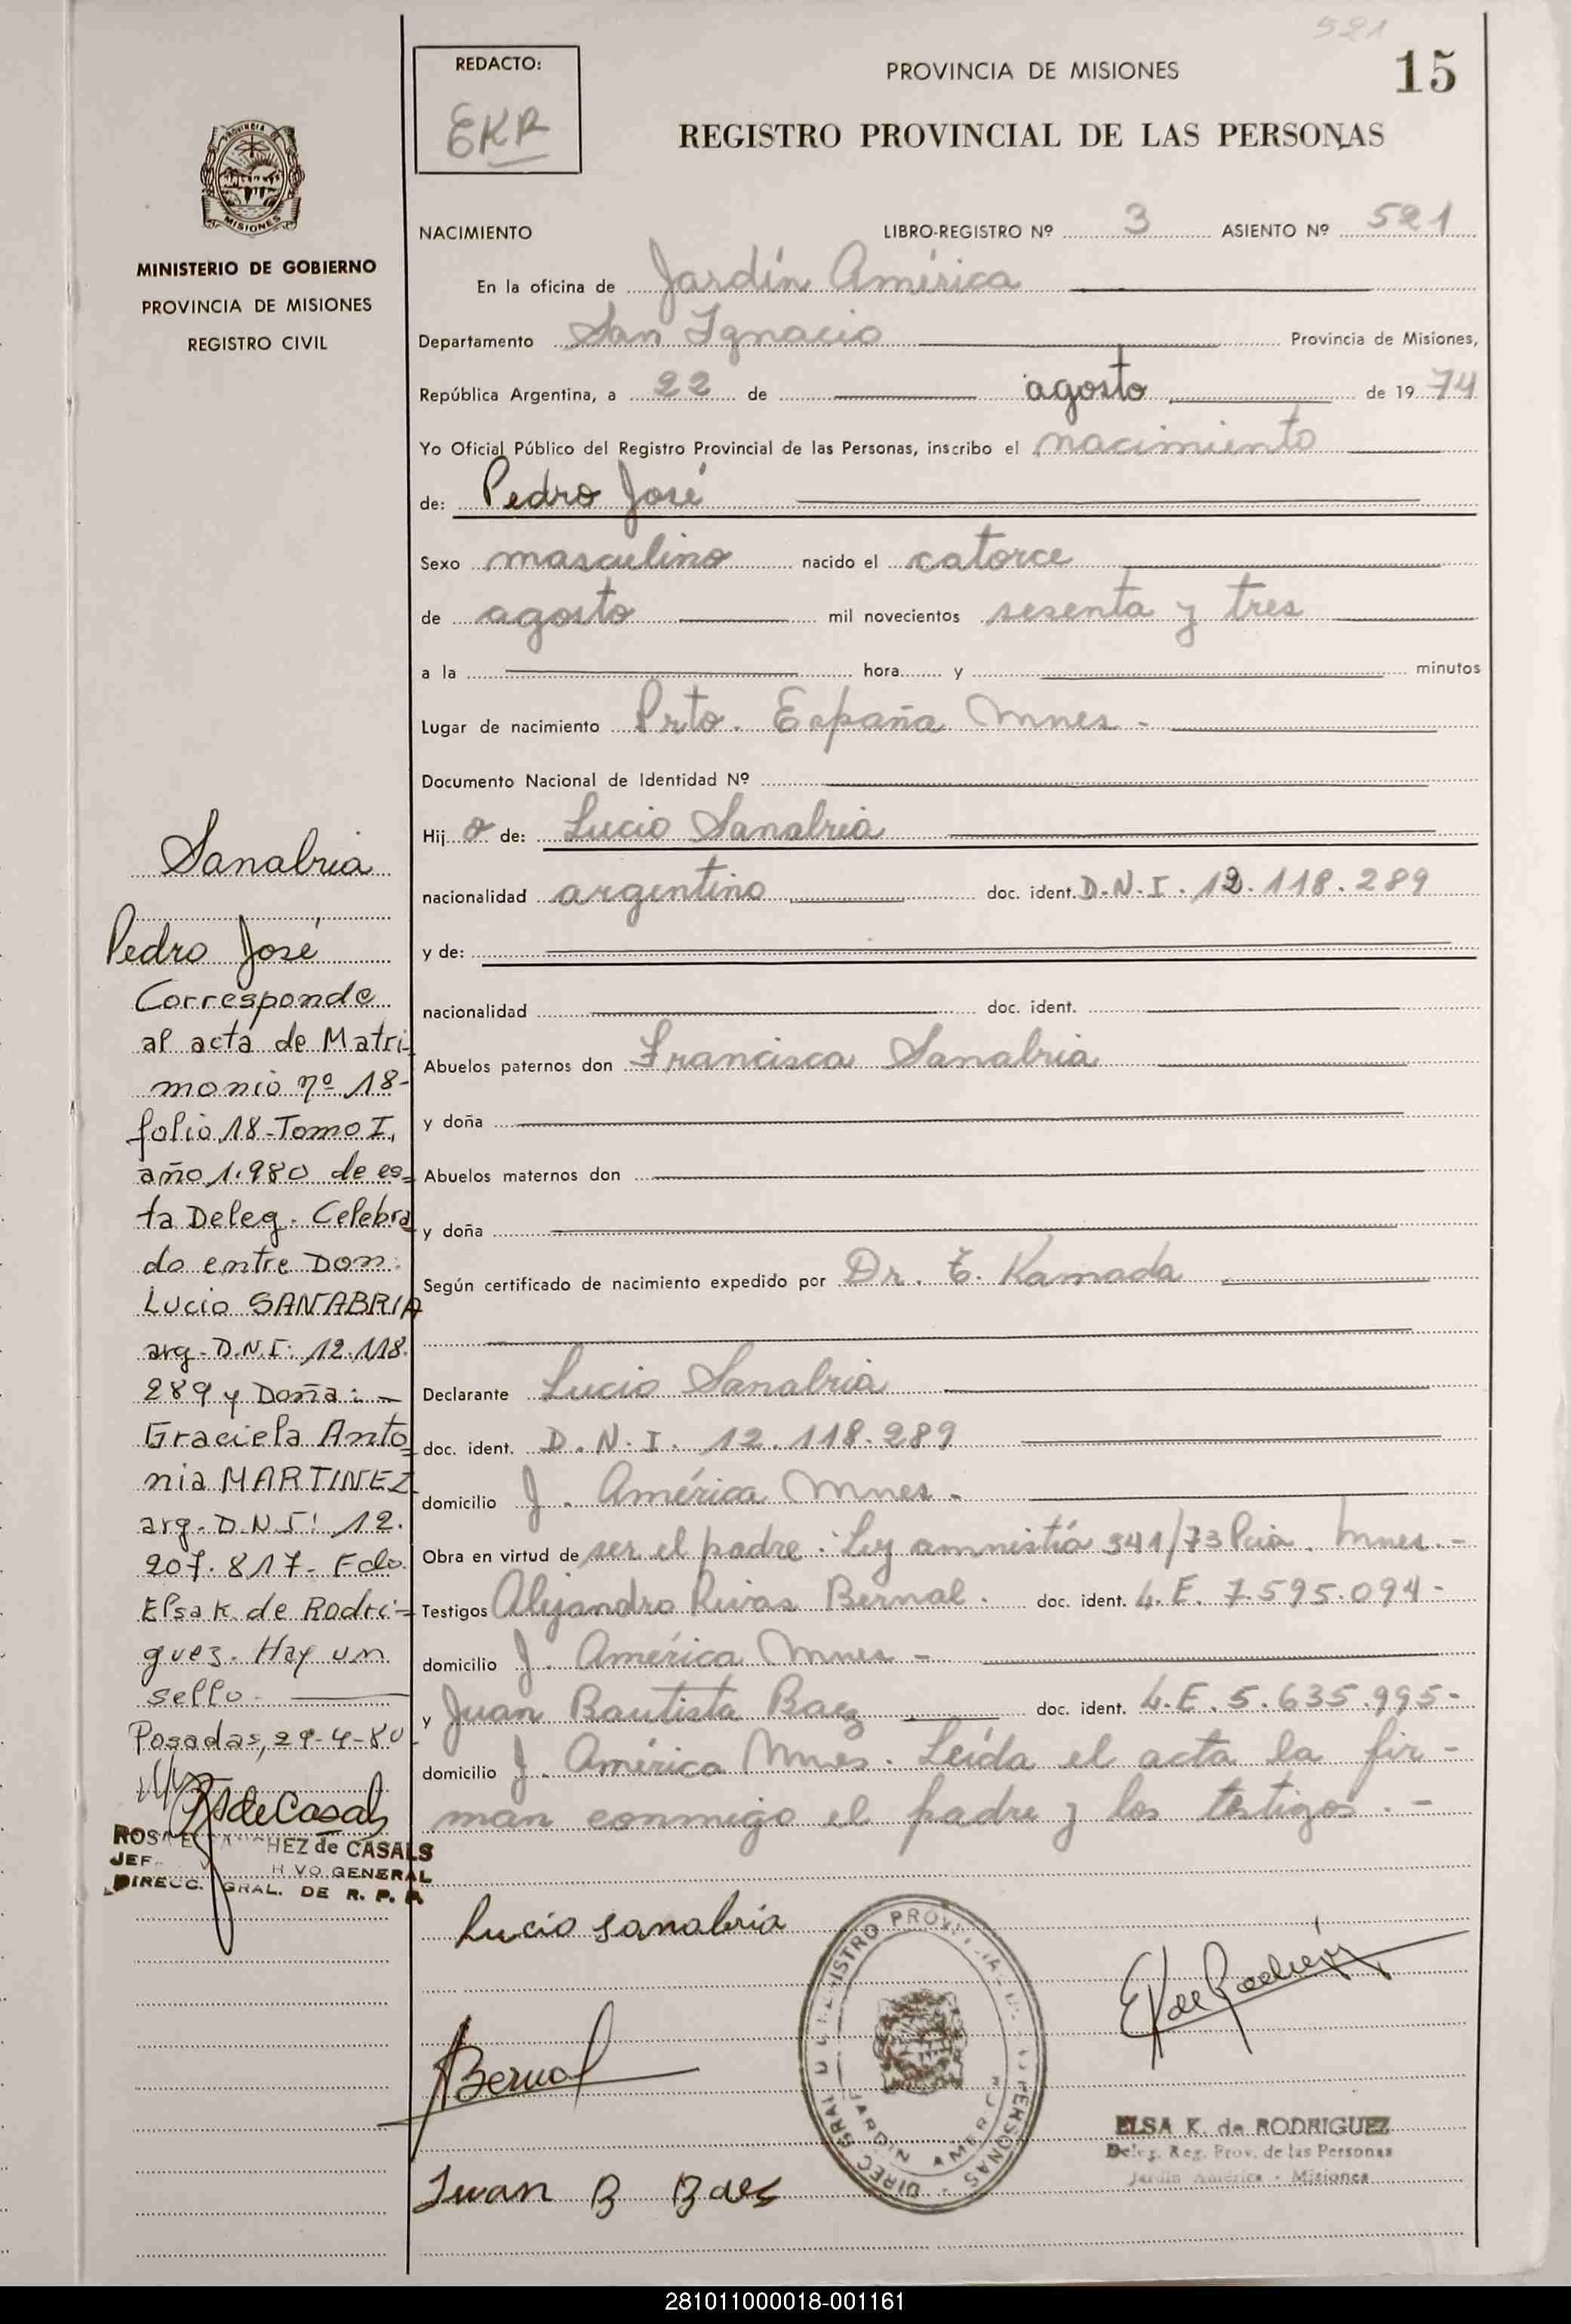 521
15
REDACTO:
EKR
PROVINCIA DE MISIONES
REGISTRO PROVINCIAL DE LAS PERSONAS
PROVINCIA DE
MISIONES
MINISTERIO DE GOBIERNO
PROVINCIA DE MISIONES
REGISTRO CIVIL
NACIMIENTO LIBRO-REGISTRO Nº 3 ASIENTO Nº 521
En la oficina de Jardín América
Departamento San Ignacio Provincia de Misiones,
República Argentina, a 22 de agosto de 19 74
Yo Oficial Público del Registro Provincial de las Personas, inscribo el nacimiento
de: Pedro José
Sexo masculino nacido el catorce
de agosto mil novecientos sesenta y tres
a la hora y minutos
Lugar de nacimiento Prto. España Mnes -
Documento Nacional de Identidad Nº
Hij o de: Lucio Sanabria
nacionalidad argentino doc. ident. D.N.I. 12.118.289
y de:
nacionalidad doc. ident.
Abuelos paternos don Francisca Sanabria
y doña
Abuelos maternos don
y doña
Según certificado de nacimiento expedido por Dr. T. Kamada
Declarante Lucio Sanabria
doc. ident. D.N.I. 12.118.289
domicilio J. América Mnes -
Obra en virtud de ser el padre. Ley amnistía 341/73 Pcia. Mnes.-
Testigos Alejandro Rivas Bernal. doc. ident. L.E. 7.595.094-
domicilio J. América Mnes -
y Juan Bautista Baez doc. ident. L.E. 5.635.995-
domicilio J. América Mnes. Leída el acta la fir-
man conmigo el padre y los testigos.-
Sanabria
Pedro José
Corresponde
al acta de Matri-
monio nº 18-
folio 18-Tomo I,
año 1.980 de es-
ta Deleg. Celebra
do entre Don:
Lucio SANABRIA
arg-D.N.I: 12.118.
289 y Doña: -
Graciela Anto
nia MARTINEZ
arg-D.N.I: 12.
207.817- Fdo.
Elsa K. de Rodri-
guez. Hay un
sello.
Posadas, 29-4-80
HEZ de CASALS
GENERAL
DIRECC. GRAL. DE R. P. P.
Lucio Sanabria
Bernal
Juan B Baes
JARDIN AMERICA
ELSA K. de RODRIGUEZ
Deleg. Reg. Prov. de las Personas
Jardín América - Misiones
281011000018-001161